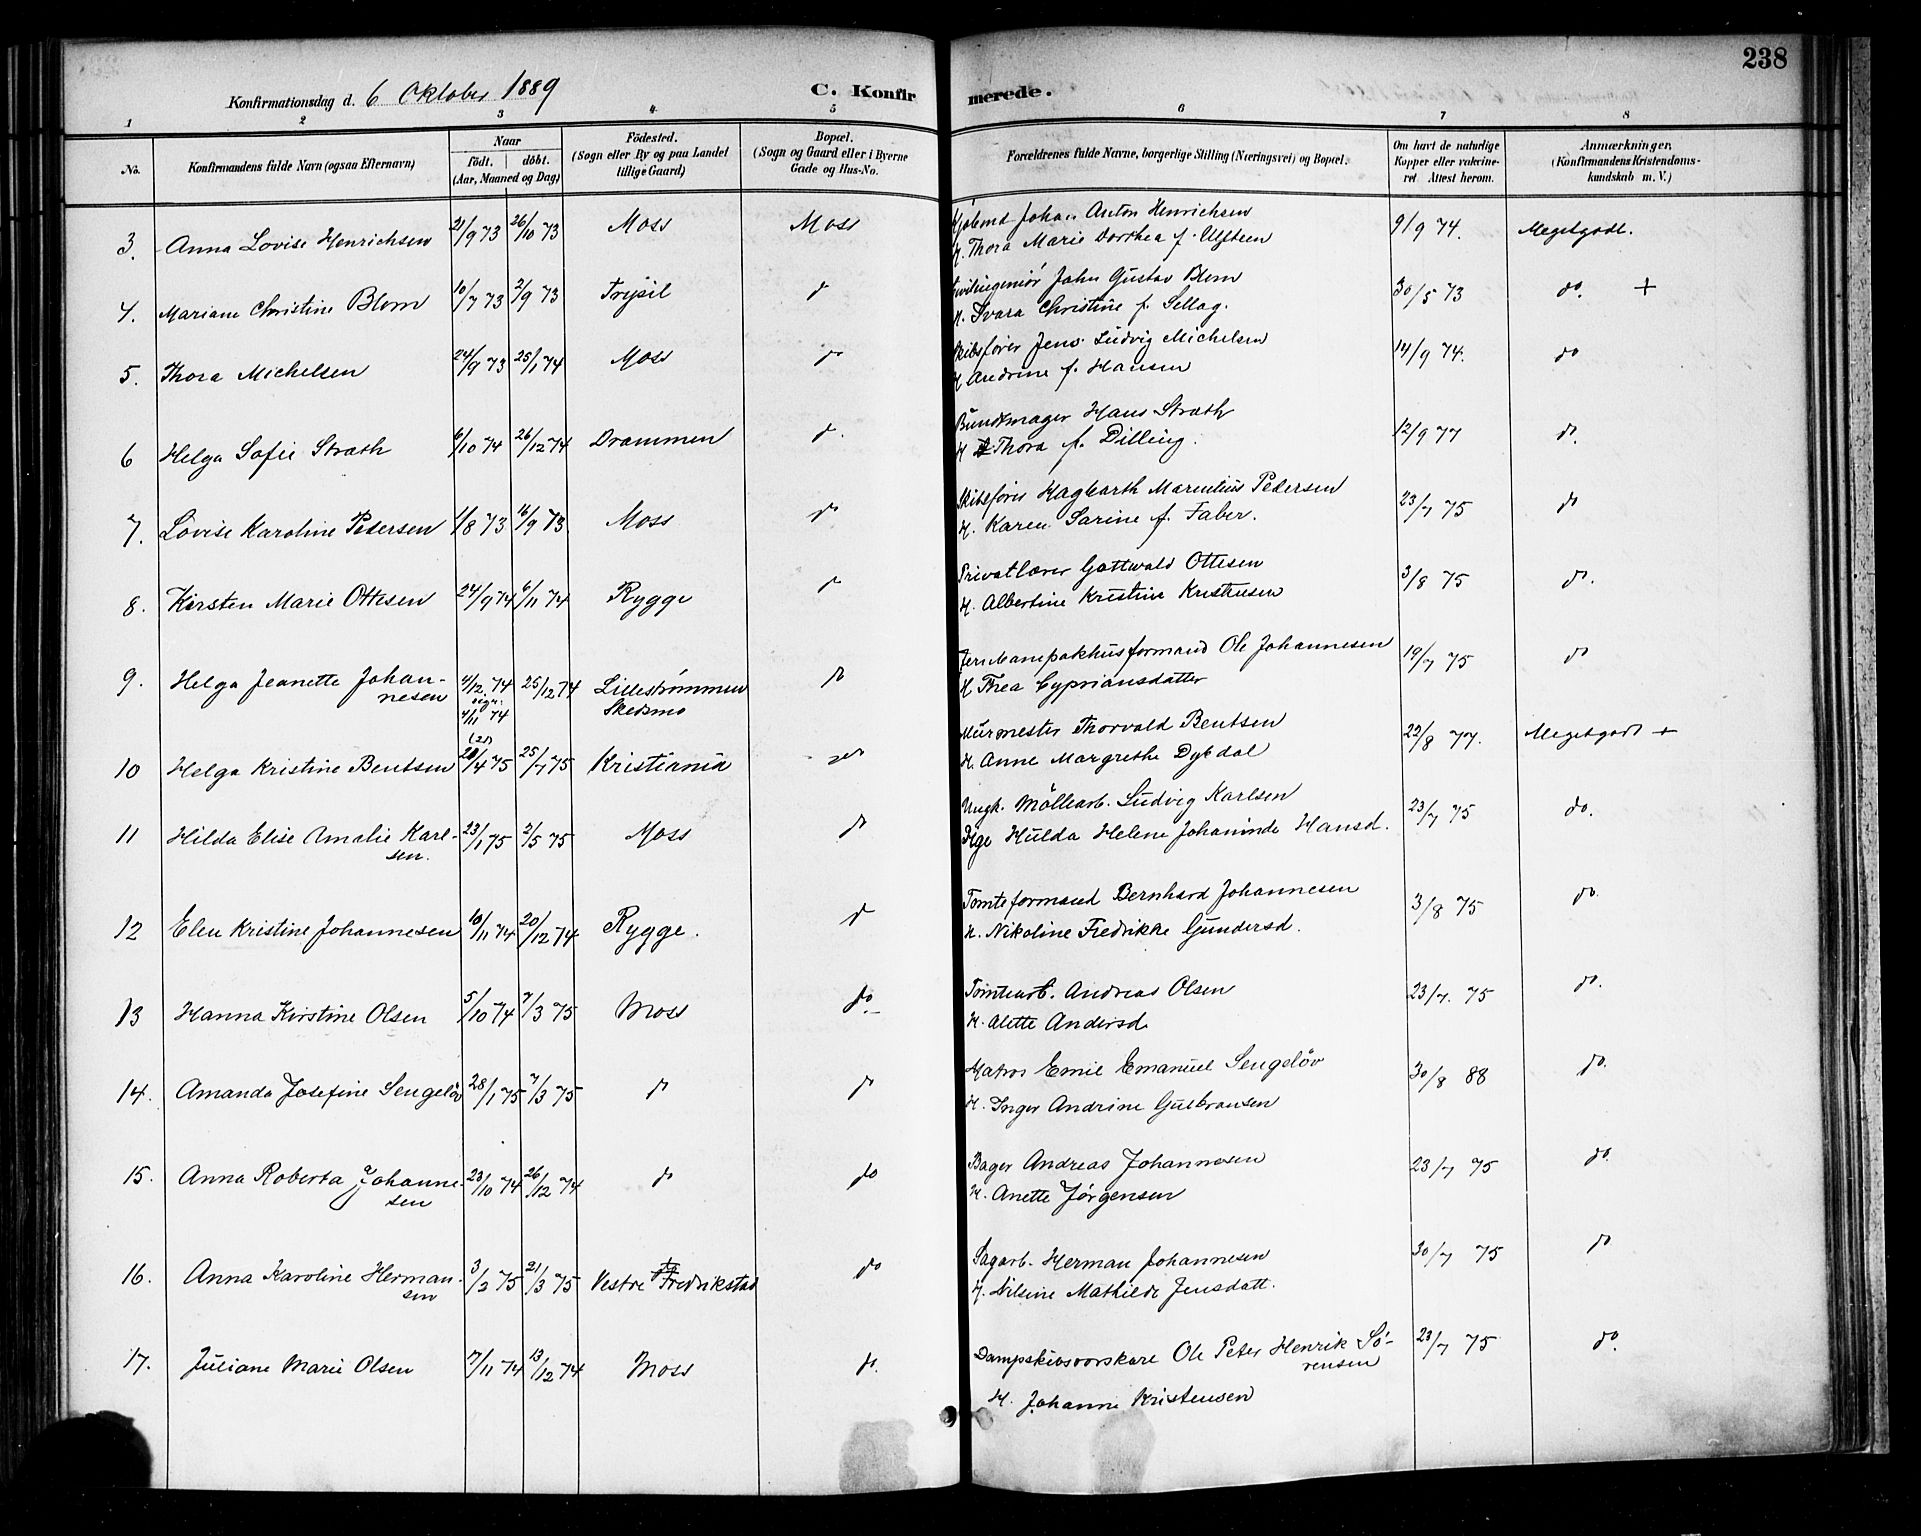 238
Konfirmationsdag d. 6 Oktober 1889 C. Konfirmerede.
1 2 3 4 5 6 7 8
No. Konfirmandens fulde Navn (ogsaa Efternavn) Naar födt. döbt. (Aar, Maaned og Dag) Födested. (Sogn eller By og paa Landet tillige Gaard) Bopæl. (Sogn og Gaard eller i Byerne Gade og Hus-No. Forældrenes fulde Navne, borgerlige Stilling (Næringsvei) og Bopæl. Om havt de naturlige Kopper eller vaccineret Attest herom. Anmærkninger, (Konfirmandens Kristendomskundskab m. V.)
3. Anna Lovise Henrichsen 21/9 73 26/10 73 Moss Moss Kjøbmd Johan Anton Henrichsen 9/9 74. Megetgodt.
H. Thora Marie Dorthea f. Ulfsteen
4. Mariane Christine Blom 10/7 73 2/9 73 Trysil do Civilingeniør John Gustav Blom 30/5 73 do. +
H. Svara Christine f. Sellag.
5. Thora Michelsen 24/9 73 25/1 74 Moss do Skibsfører Jens Ludvig Michelsen 14/9 74. do
H Andrine f. Hansen
6 Helga Sofie Strath 6/10 74 26/12 74 Drammen do. Bundtmager Hans Strath 12/9 77 do.
H Thora f. Dilling.
7. Lovise Karoline Pedersen 1/8 73 16/9 73 Moss do Skibsfører Hagbarth Marentius Pedersen 23/7 75 do
H. Karen Sarine f. Faber.
8. Kirsten Marie Ottesen 24/9 74 6/11 74 Rygge do Privatlærer Gottwald Ottesen 3/8 75 do.
H. Albertine Kristine Kristensen
9. Helga Jeanette Johan- 4/12. 74 25/12 74 Lillestrømmen do Jernbanepakhusformand Ole Johannesen 19/7 75 do
nesen 4/11 74 Skedsmo H Thea Cypriansdatter
10 Helga Kristine Bentsen 20/4 75 25/7 75 Kristiania do Murmester Thorvald Bentsen 22/8 77. Megetgodt +
H. Anne Margrethe Dykdal
11 Hilda Elise Amalie Karl- 23/1 75 2/5 75 Moss do Ungk. Møllearb. Ludvig Karlsen 23/7 75 do.
sen. Pige Hulda Helene Johaninde Hansd.
12 Elen Kristine Johannesen 10/11 74 20/12 74 Rygge. do Tomteformand Bernhard Johannesen 3/8 75 do.
H. Nikoline Fredrikke Gundersd.
13 Hanna Kirstine Olsen 5/10 74 7/3 75 Moss do. Tomtearb. Andreas Olsen 23/7. 75 do.
H. Alette Andersd.
14. Amanda Josefine Sengeløv 28/1 75 7/3 75 do do Matros Emil Emanuel Sengeløv 30/8 88 do.
H. Inger Andrine Gulbransen
15. Anna Roberta Johanne- 23/10 74 26/12 74 do do Bager Andreas Johannesen 23/7 75 do.
sen H. Anette Jørgensen
16. Anna Karoline Herman- 3/2 75 21/3 75 Vestre Fredrikstad do Sagarb. Herman Johannesen 30/7 75 do
sen H. Nilsine Mathilde Jensdatt.
17. Juliane Marie Olsen 7/11 74 13/12 74 Moss do. Dampskibsvorskare Ole Peter Henrik Sø- 23/7 75 do.
rensen
H. Johanne Kristensen